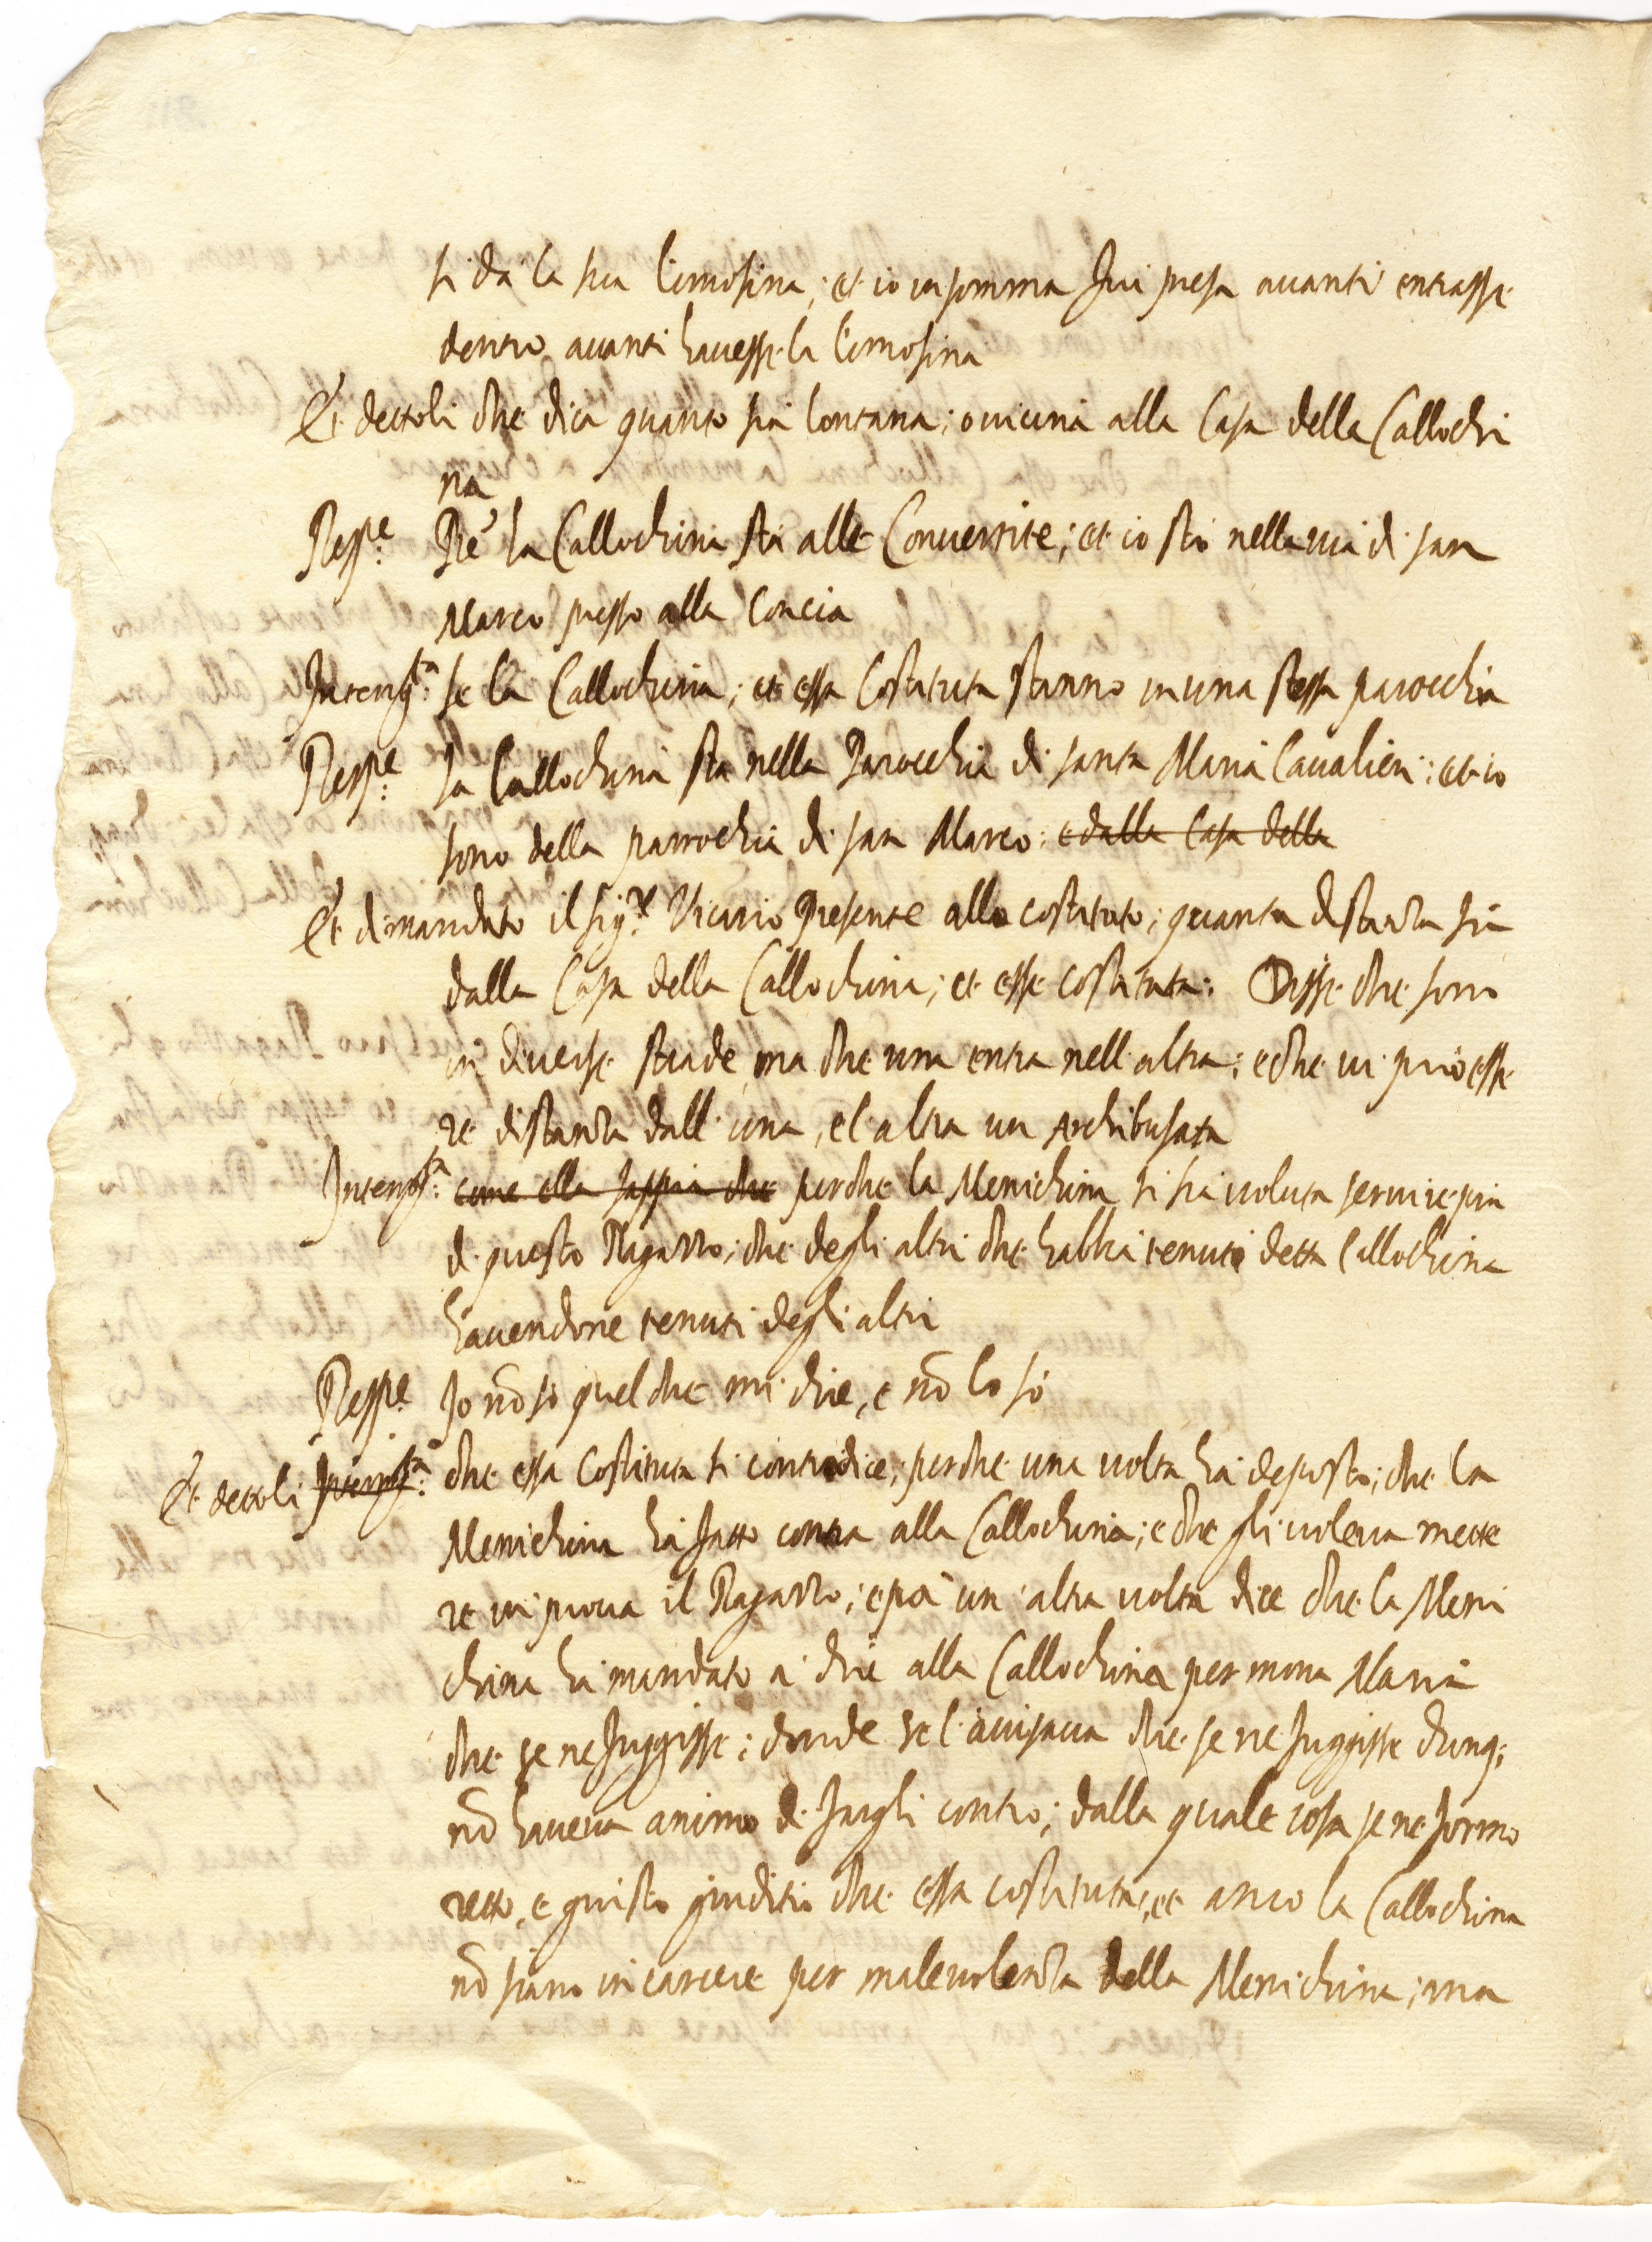 si dà la sua limosina; et io in somma fui presa avanti entrasse
dentro, avanti havesse la limosina
Et dettoli che dica quanto sia lontana; o vicina alla Casa della Callochi
na
Resp.e La Callochina sta alle Convertite; et io sto nella via di san
Marco presso alla Concia
Interrog.ta se la Callochina; et essa Costituta stanno in una stessa parocchia
Resp.e La Callochina sta nella Parocchia di santa Maria Cavalieri; et io
sono della parrochia di san Marco: e dalla Casa della
Et dimandato il Sig.r Vicario Presente allo costituto; quanta distanza sia
dalla Casa della Callochina; et esse costituta: Disse che sono
in diverse strade, ma che una entra nell'altra; e che vi può esse
re distanza dall'una, e l'altra un Archibusata
Interrog.ta come ella sappia che perche la Menichina si sia voluta servire più
di questo Ragazzo; che degli altri che habbia tenuti detta Callochina
havendone tenuti degli altri
Resp.e Io nō sò quel che mi dire, e nō lo sò
Et dettoli Interrog.ta che essa Costituta si contradice; perche una volta ha deposto; che la
Menichina hà fatto contra alla Callochina; e che gli voleva mette
re in prova il Ragazzo; e poi un'altra volta dice che la Meni
china hà mandato a dire alla Callochina per mona Maria
che se ne fuggisse; donde se l'avisava che se ne fuggisse dunq;
nō haveva animo di fargli contro; dalla quale cosa se ne forma
retto, e giusto giuditio che essa costituta, et anco la Callochina
nō siano in carcere per malevolenza della Menichina; ma